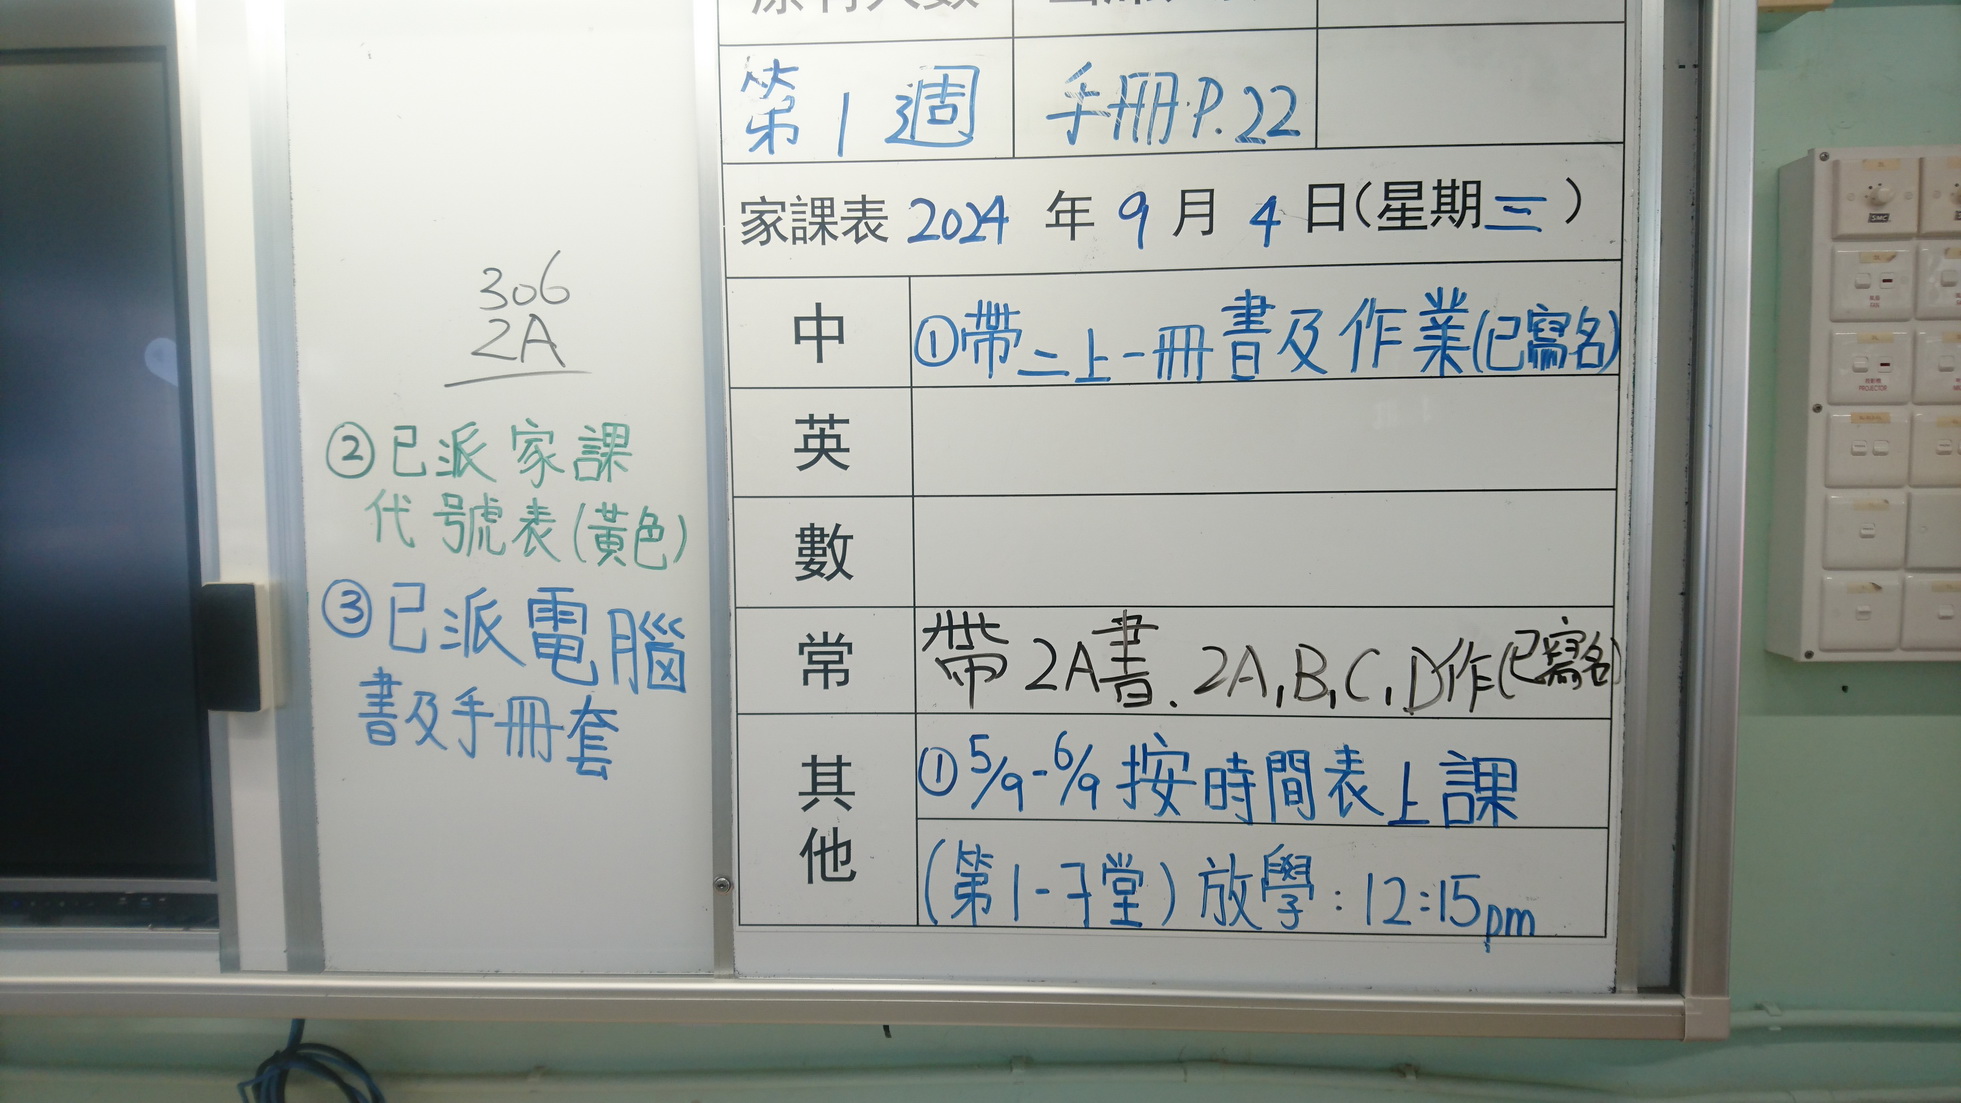 306
2A
②已派家課
代號表(黃色)
③已派電腦
書及手冊套
第1週 手冊P.22
家課表 2024 年 9 月 4 日(星期三)
中 ①帶二上一冊書及作業(已寫名)
英
數
常 帶2A書. 2A,B,C,D作(已寫名)
其他 ①5/9-6/9按時間表上課
(第1-7堂)放學:12:15pm
PROJECTOR